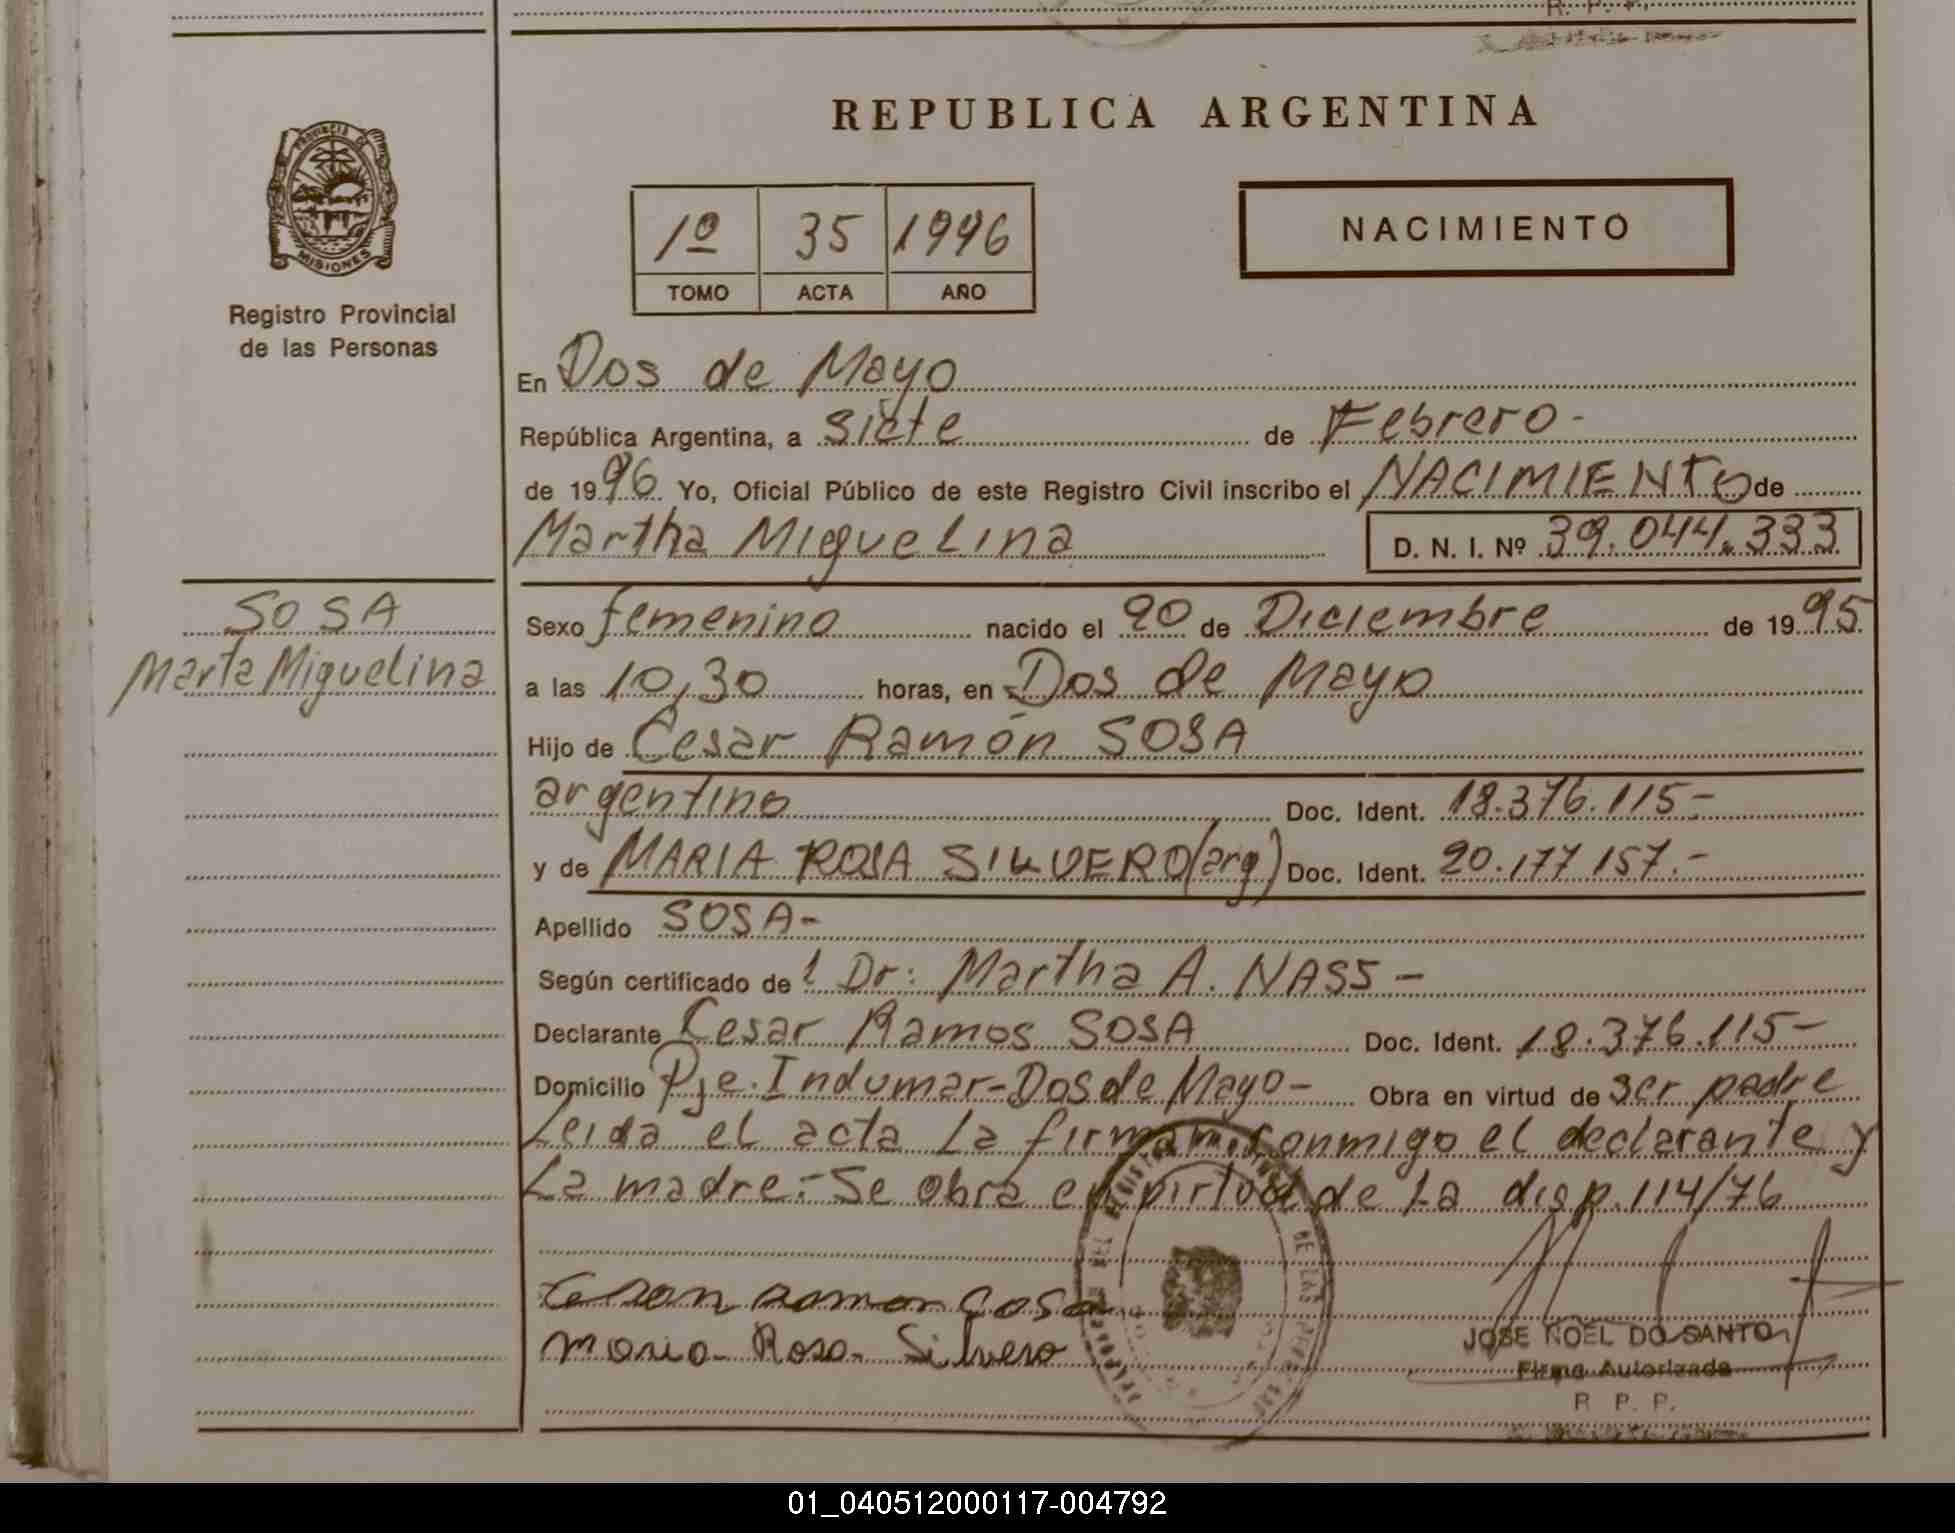 R. P. P.
REPUBLICA ARGENTINA
PROVINCIA DE
MISIONES
Registro Provincial
de las Personas
1º 35 1996
TOMO ACTA AÑO
NACIMIENTO
En Dos de Mayo
República Argentina, a siete de Febrero-
de 1996 Yo, Oficial Público de este Registro Civil inscribo el NACIMIENTO de
Martha Miguelina D. N. I. Nº 39.044.333
SOSA
Marta Miguelina
Sexo femenino nacido el 20 de Diciembre de 1995
a las 10,30 horas, en Dos de Mayo
Hijo de Cesar Ramón SOSA
argentino Doc. Ident. 18.376.115-
y de MARIA ROSA SILVERO (arg) Doc. Ident. 20.177 157.-
Apellido SOSA-
Según certificado de l Dr: Martha A. NASS-
Declarante Cesar Ramos SOSA Doc. Ident. 18.376.115-
Domicilio Pje. Indumar-Dos de Mayo- Obra en virtud de ser padre
Leida el acta la firman conmigo el declarante y
La madre.-Se obra en virtud de la disp. 114/76
Maria Rosa Silvero
JOSE NOEL DO SANTO
Firma Autorizada
R. P. P.
01_040512000117-004792